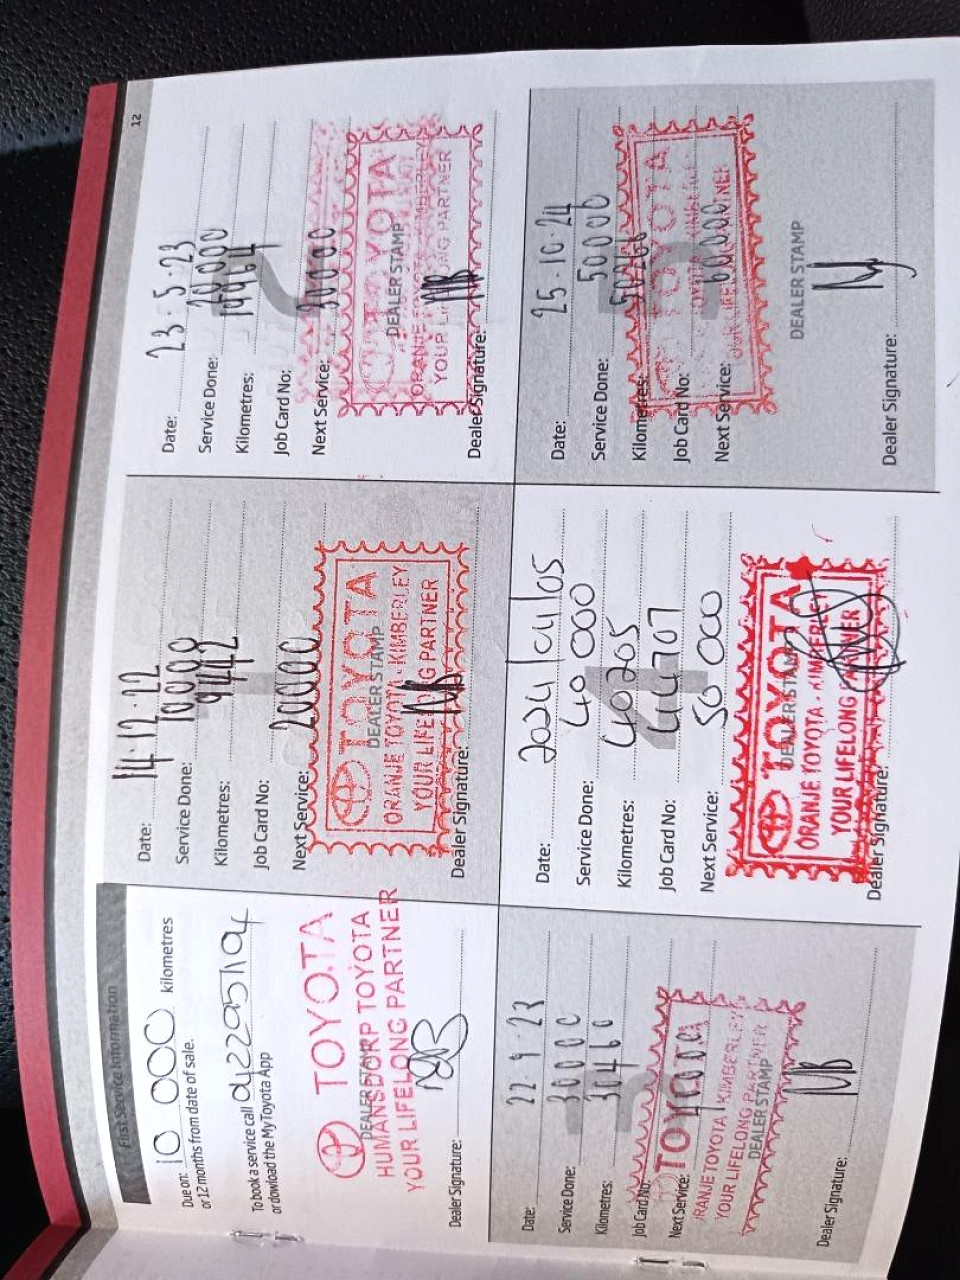 12
First Service Information
Due on: 10 000 kilometres
or 12 months from date of sale.
To book a service call 0422951104
or dowload the MyToyota App
TOYOTA
DEALER STAMP
HUMANSDORP TOYOTA
YOUR LIFELONG PARTNER
Dealer Signature:
Date: 14.12.22
Service Done: 10000
Kilometres: 9442
Job Card No:
Next Service: 20000
TOYOTA
DEALER STAMP
ORANJE TOYOTA - KIMBERLEY
YOUR LIFELONG PARTNER
Dealer Signature:
Date: 23.5.23
Service Done: 20000
Kilometres: 19964
Job Card No:
Next Service: 30000
TOYOTA
DEALER STAMP
ORANJE TOYOTA - KIMBERLEY
YOUR LIFELONG PARTNER
Dealer Signature:
Date: 22 9 23
Service Done: 30000
Kilometres: 30460
Job Card No:
Next Service: 40000
TOYOTA
ORANJE TOYOTA KIMBERLEY
YOUR LIFELONG PARTNER
DEALER STAMP
Dealer Signature:
4
Date: 2024/04/05
Service Done: 40 000
Kilometres: 40205
Job Card No: 44707
Next Service: 50 000
TOYOTA
DEALER STAMP
ORANJE TOYOTA - KIMBERLEY
YOUR LIFELONG PARTNER
Dealer Signature:
Date: 25.10.24
Service Done: 50000
Kilometres: 50266
Job Card No:
Next Service: 60000
TOYOTA
DEALER STAMP
Dealer Signature: